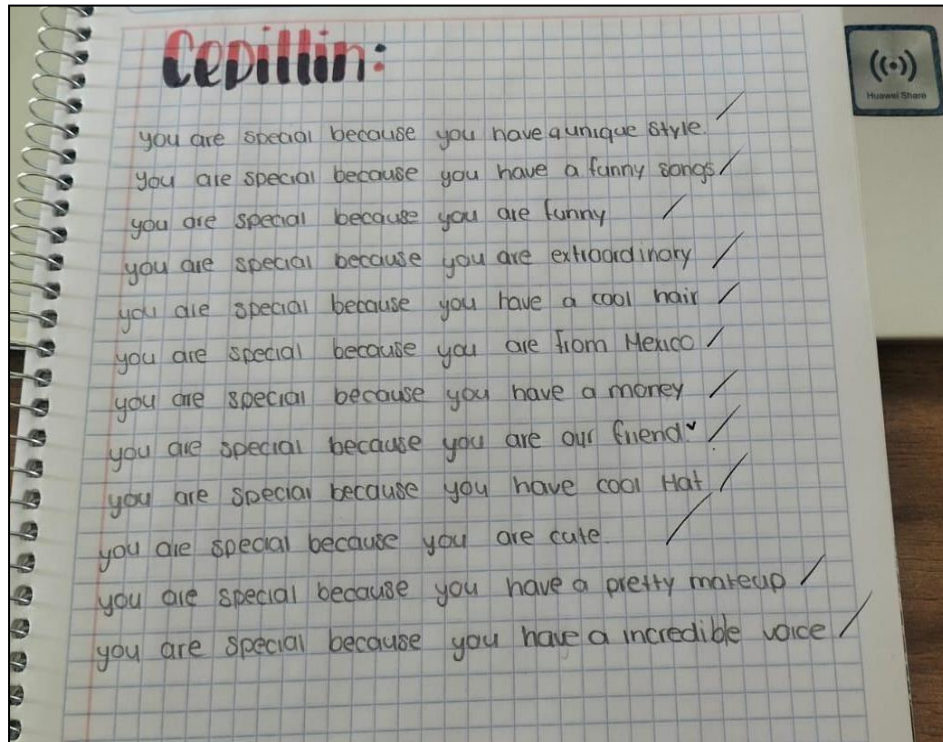 Cepillin:
((•))
Huawei Share
you are special because you have a unique style. /
you are special because you have a funny songs /
you are special because you are funny /
you are special because you are extraordinary /
you are special because you have a cool hair /
you are special because you are from Mexico /
you are special because you have a money /
you are special because you are our friend /
you are special because you have cool Hat /
you are special because you are cute. /
you are special because you have a pretty makeup /
you are special because you have a incredible voice /